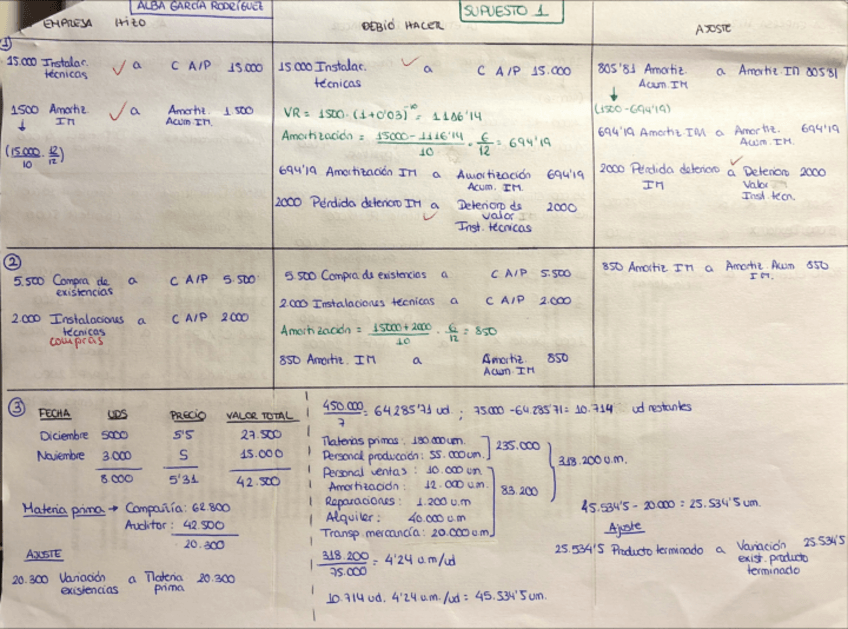 ALBA GARCÍA RODRÍGUEZ
SUPUESTO 1
EMPRESA HIZO
DEBIÓ HACER
AJUSTE
1
15.000 Instalac. técnicas a C A/P 15.000
1500 Amortiz. IM a Amortiz. Acum. IM. 1.500
(15.000/10 · 12/12)
15.000 Instalac. técnicas a C A/P 15.000
VR = 1500 · (1+0'03)^-10 = 1116'14
Amortización = 15000 - 1116'14 / 10 · 6/12 = 694'19
694'19 Amortización IM a Amortización Acum. IM. 694'19
2000 Pérdida deterioro IM a Deterioro de valor Inst. técnicas 2000
805'81 Amortiz. Acum. IM a Amortiz. IM 805'81
(1500 - 694'19)
694'19 Amortiz. IM a Amortiz. Acum. IM. 694'19
2000 Pérdida deterioro IM a Deterioro Valor Inst. técn. 2000
2
5.500 Compra de existencias a C A/P 5.500
2.000 Instalaciones técnicas a C A/P 2000
compras
5.500 Compra de existencias a C A/P 5.500
2.000 Instalaciones técnicas a C A/P 2.000
Amortización = 15000 + 2000 / 10 · 6/12 = 850
850 Amortiz. IM a Amortiz. Acum. IM 850
850 Amortiz. IM a Amortiz. Acum IM. 850
3
FECHA UDS PRECIO VALOR TOTAL
Diciembre 5000 5'5 27.500
Noviembre 3.000 5 15.000
8.000 5'31 42.500
Materia prima → Compañía: 62.800
Auditor: 42.500
20.300
AJUSTE
20.300 Variación existencias a Materia prima 20.300
450.000/7 = 64.285'71 ud ; 75.000 - 64.285'71 = 10.714 ud restantes
Materias primas: 180.000 um.
Personal producción: 55.000 um.
235.000
Personal ventas: 10.000 um.
Amortización: 12.000 um.
Reparaciones: 1.200 u.m
Alquiler: 40.000 u.m
Transp. mercancía: 20.000 u.m
83.200
318.200 u.m.
318.200/75.000 = 4'24 u.m/ud
10.714 ud. 4'24 u.m./ud = 45.534'5 um.
45.534'5 - 20.000 = 25.534'5 um.
Ajuste
25.534'5 Producto terminado a Variación exist. producto terminado 25.534'5